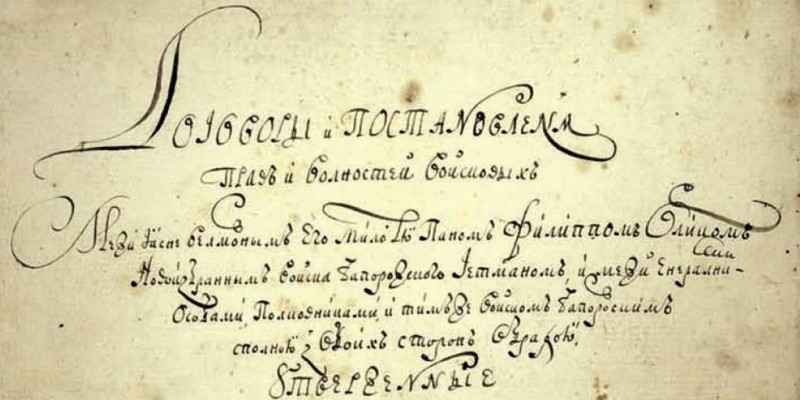 Договоры и Постановлениѧ
Правъ и волностей войсковыхъ
Межи Ясне велможнымъ Его Милостю Паномъ Филиппомъ Орликомъ
Новоизбраннымъ войска Запорожского Гетманомъ, и межи Енерални-
Особами, Полковниками, и тимъже войскомъ Запорожскимъ
сполною з обоихъ сторонъ обрадою,
Утверженные